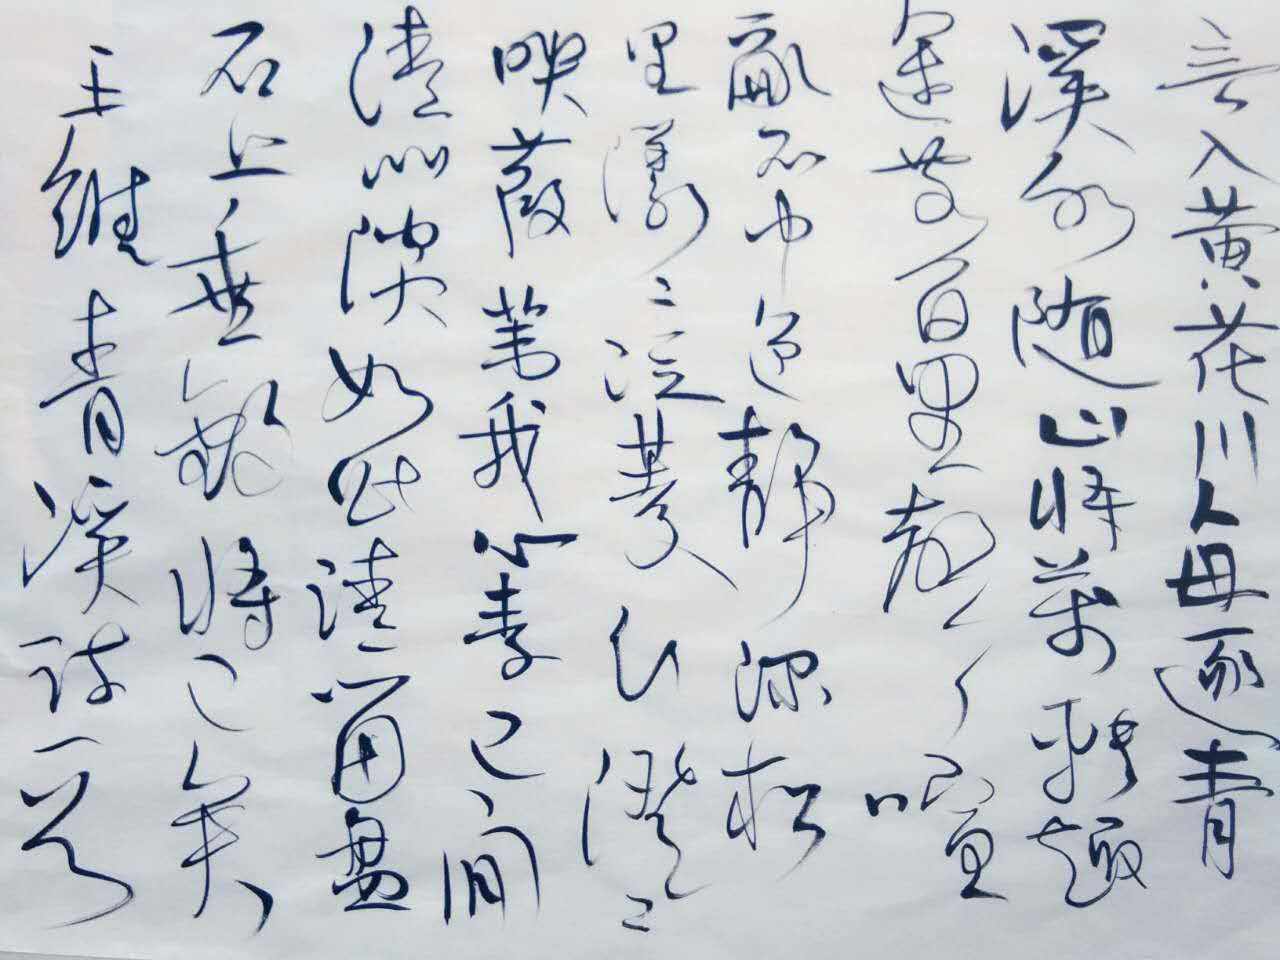 言入黄花川每逐青
溪水随山将萬轉趣
途無百里聲喧
亂石中色静深松
里漾〻泛菱荇澄〻
映葭苇我心素已闲
清川澹如此请留盘
石上垂钓将已矣
王维青溪诗一首